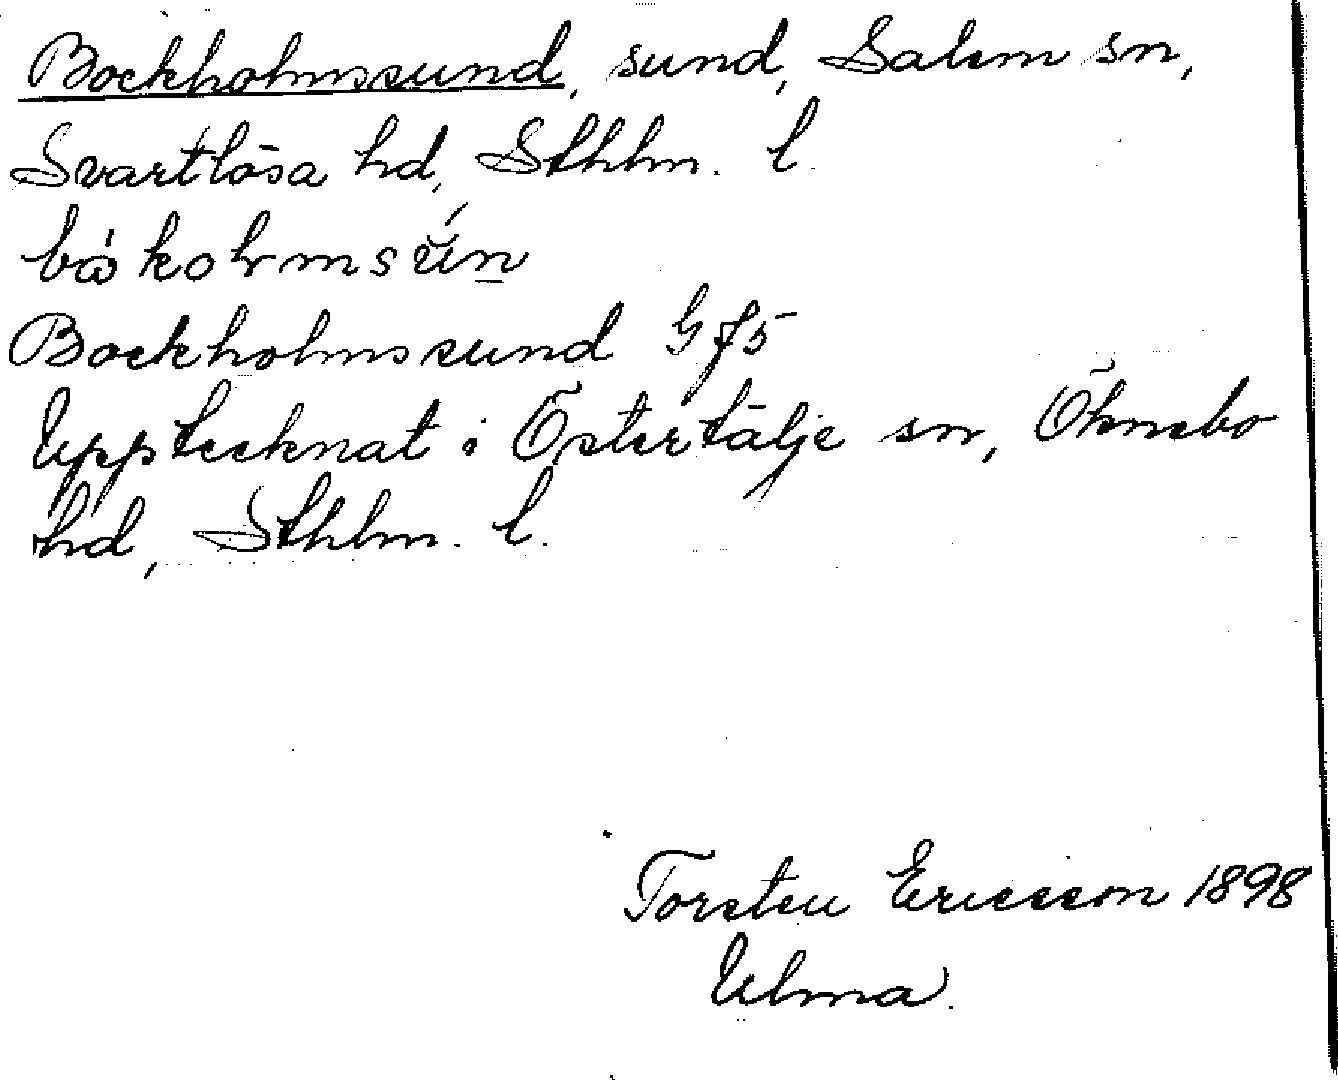 Bockholmssund, sund, Salem sn,
Svartlösa hd, Sthlm. l.
båkolmsún
Bockholmssund Gf5
Upptecknat i Östertälje sn, Öknebo
hd, Sthlm. l.
Torsten Ericsson 1898
Ulma.